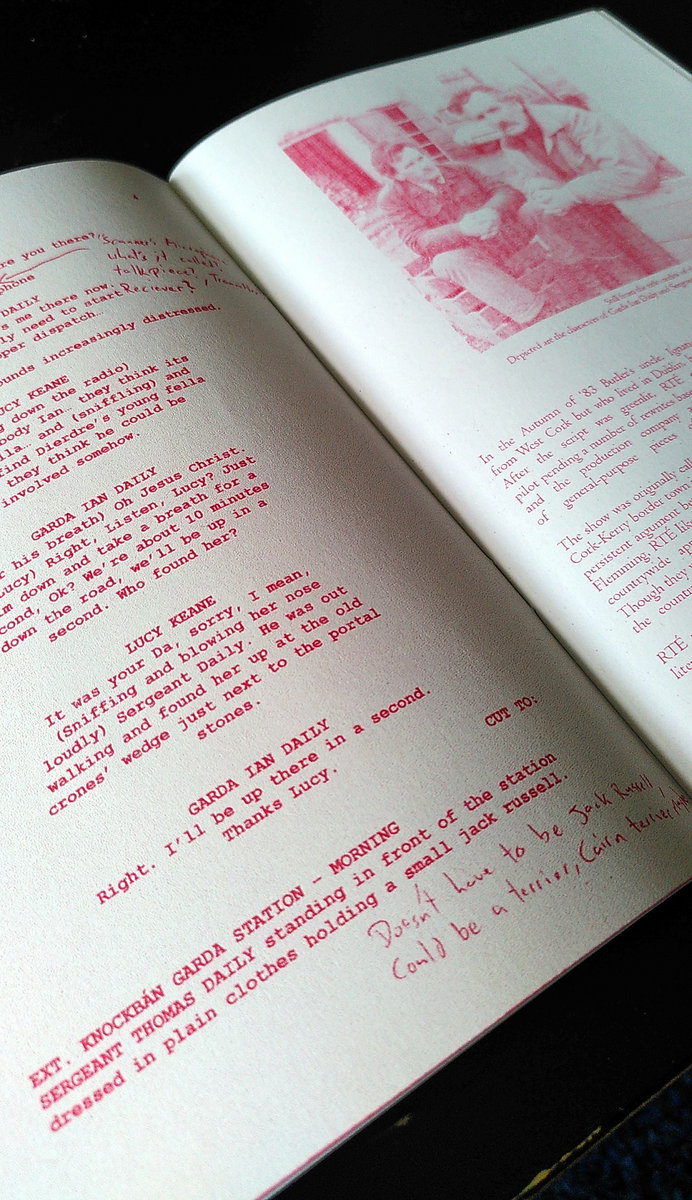 re you there?
"Spanner's
what's it called?
phone
talkpiece?
Reciever?
DAILY
s me there now.
ly need to start
per dispatch…
ounds increasingly distressed.
UCY KEANE
down the radio)
body Ian… they think its
lla.. and (sniffling) and
find Dierdre's young fella
they think he could be
involved somehow.
GARDA IAN DAILY
r his breath) Oh Jesus Christ.
Lucy) Right, Listen, Lucy? Just
lm down and take a breath for a
cond, Ok? We're about 10 minutes
down the road, we'll be up in a
second. Who found her?
LUCY KEANE
It was your Da, sorry, I mean,
(Sniffing and blowing her nose
loudly) Sergeant Daily. He was out
walking and found her up at the old
crones' wedge just next to the portal
stones.
GARDA IAN DAILY
Right. I'll be up there in a second.
Thanks Lucy.
CUT TO:
EXT. KNOCKBÁN GARDA STATION – MORNING
SERGEANT THOMAS DAILY standing in front of the station
dressed in plain clothes holding a small jack russell.
Doesn't have to be Jack Russell,
Could be a terrier, Cairn terrier,
Still from the
Depicted are the characters of Garda Ian Daily and Sergeant
In the Autumn of '83 Butler's uncle, Ignat
from West Cork but who lived in Dublin,
After the script was greenlit, RTÉ
pilot pending a number of rewrites, bas
and the production company
of general-purpose pieces
The show was originally call
Cork-Kerry border town
persistent argument be
Flemming. RTÉ lik
countrywide app
Though they
the count
RTÉ
lite